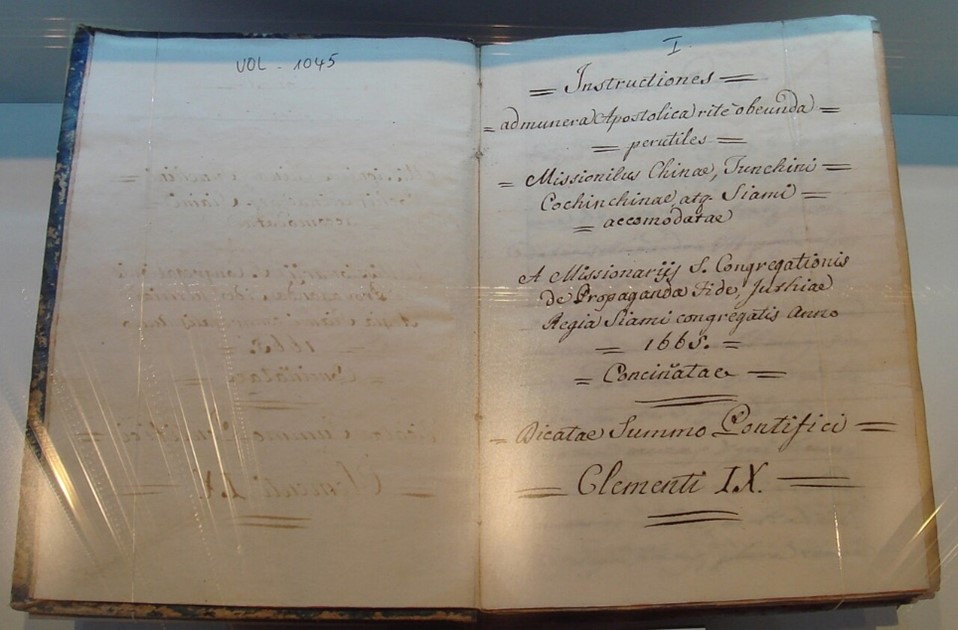 VOL - 1045
I
= Instructiones =
= ad munera Apostolica rite obeunda =
= perutiles =
= Missionibus Chinae, Tunchini =
Cochinchinae, atq. Siami =
= accomodatae
A Missionarijs S. Congregationis
de Propaganda Fide, Juthiae
Regia Siami congregatis Anno
= 1665. =
= Conciñatae =
= Dicatae Summo Pontifici =
= Clementi IX. =